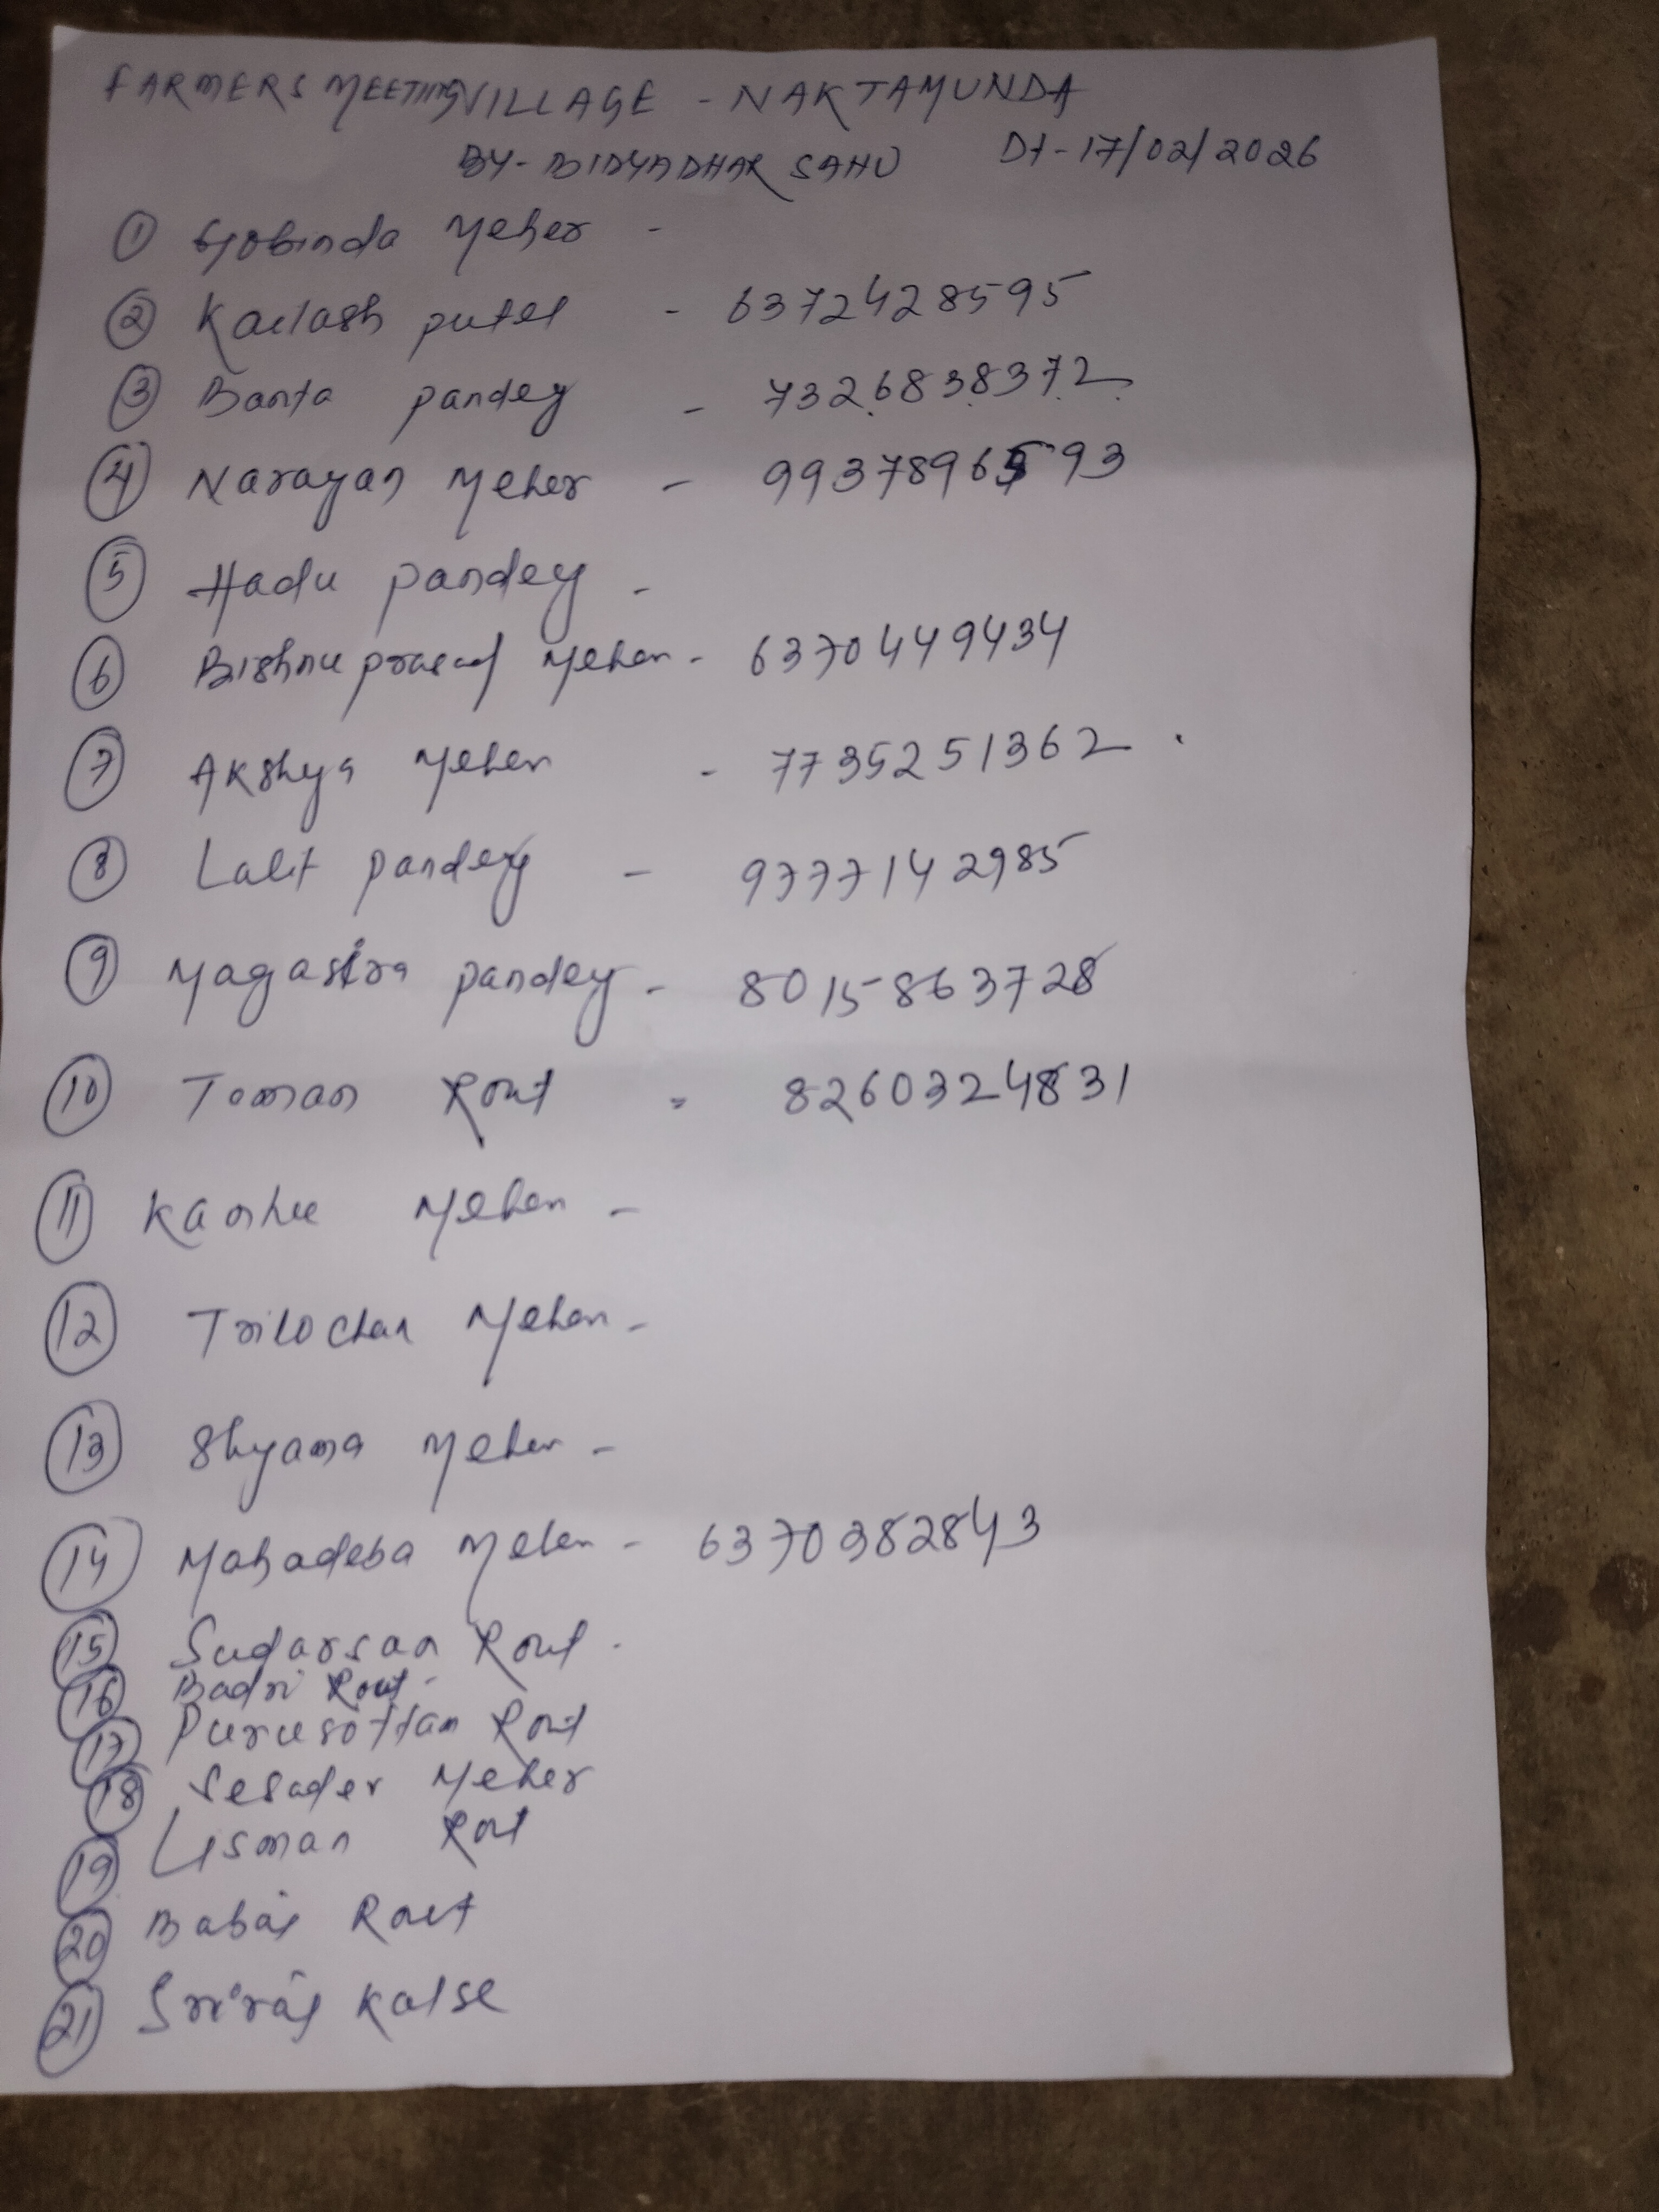 FARMERS MEETING VILLAGE - NAKTAMUNDA
BY- BIDYADHAR SAHU Dt-17/02/2026
1 Gobinda Meher -
2 Kailash putel - 6372428595
3 Banta pandey - 7326838372
4 Narayan Meher - 9937896593
5 Hadu pandey -
6 Bishnu prasad Meher - 6370449434
7 Akshya Meher - 7735251362
8 Lalit pandey - 9777142985
9 Magasira pandey - 8015863728
10 Toman Rout - 8260324831
11 Kanhu Meher -
12 Trilochan Meher -
13 Shyama Meher -
14 Mahadeba Meher - 6370382843
15 Sudarsan Rout -
16 Badri Rout -
17 Purusottam Rout
18 Sesader Meher
19 Lisman Rout
20 Babaj Rout
21 Sriraj Kalse